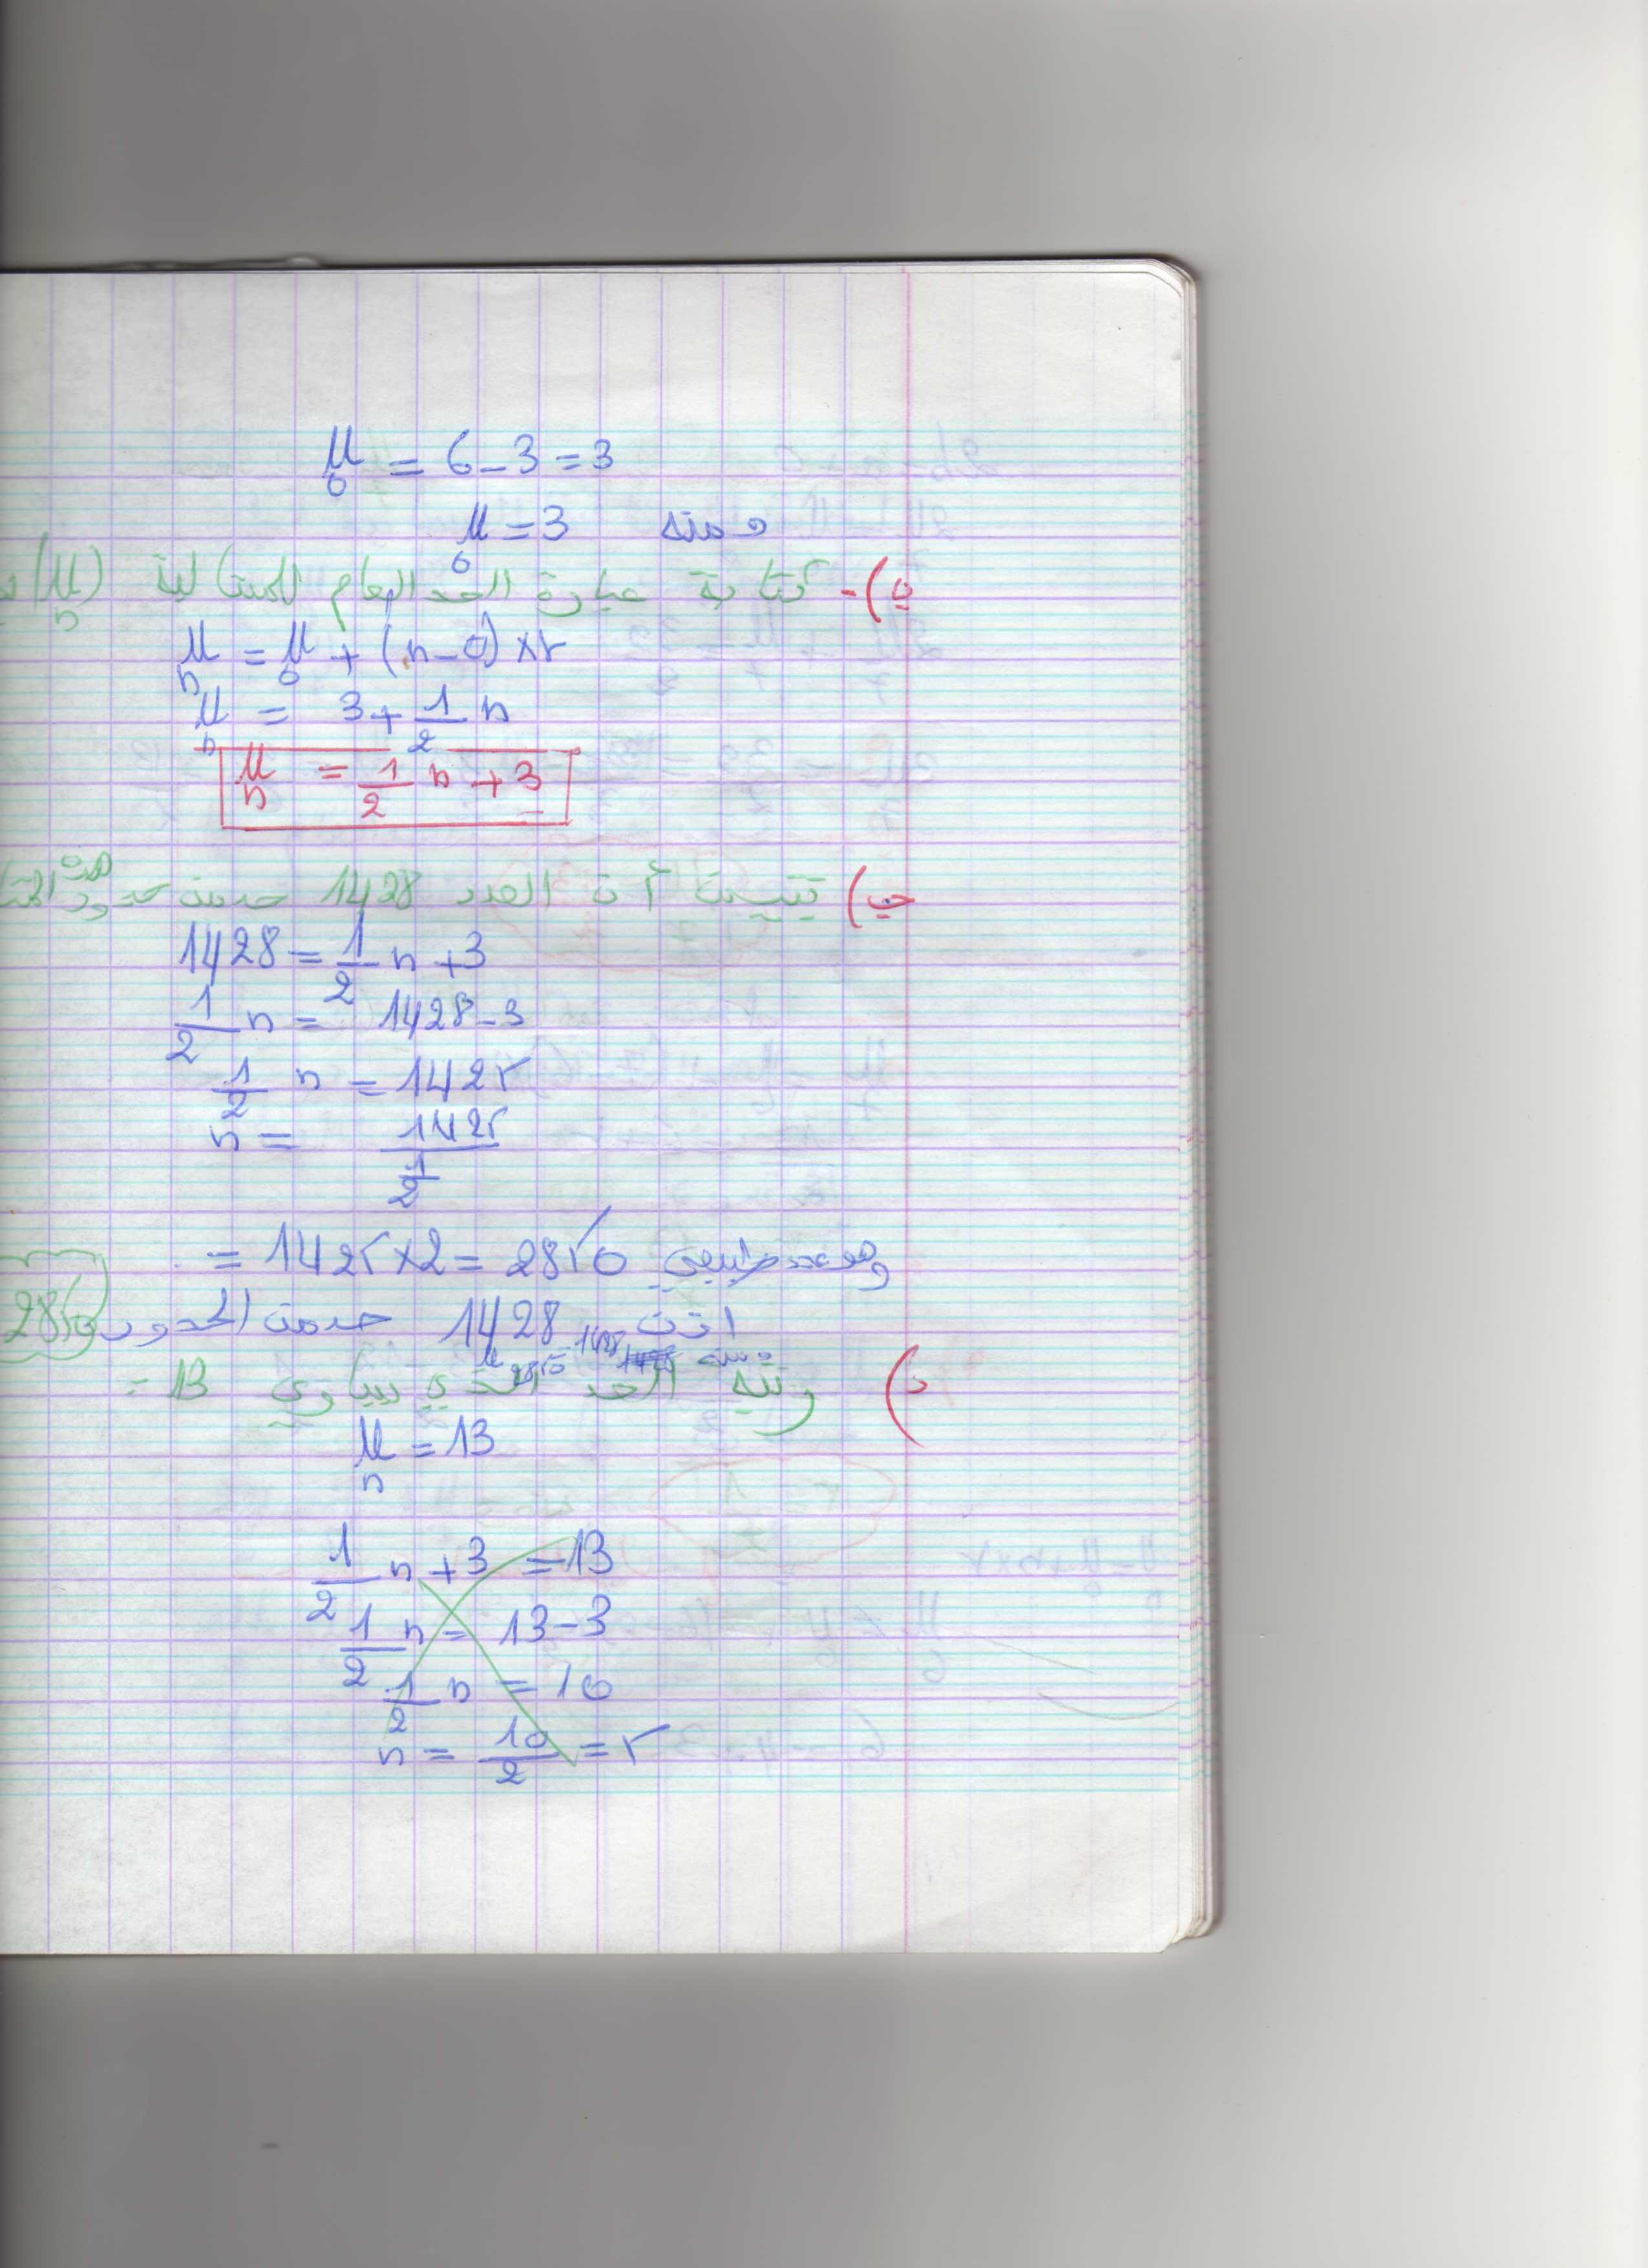 u₀ = 6 - 3 = 3
ومنه u₀ = 3
ب) - كتابة عبارة الحد العام للمتتالية (uₙ)
uₙ = u₀ + (n - 0) × r
uₙ = 3 + 1/2 n
uₙ = 1/2 n + 3
ج) تبيين أن العدد 1428 حد من حدود
1428 = 1/2 n + 3
1/2 n = 1428 - 3
1/2 n = 1425
n = 1425 / 1/2
= 1425 × 2 = 2850 وهو عدد طبيعي
اذن 1428 حد من الحدود 2850
د) رتبة الحد الذي يساوي 13 =
uₙ = 13
1/2 n + 3 = 13
1/2 n = 13 - 3
1/2 n = 10
n = 10/2 = 5